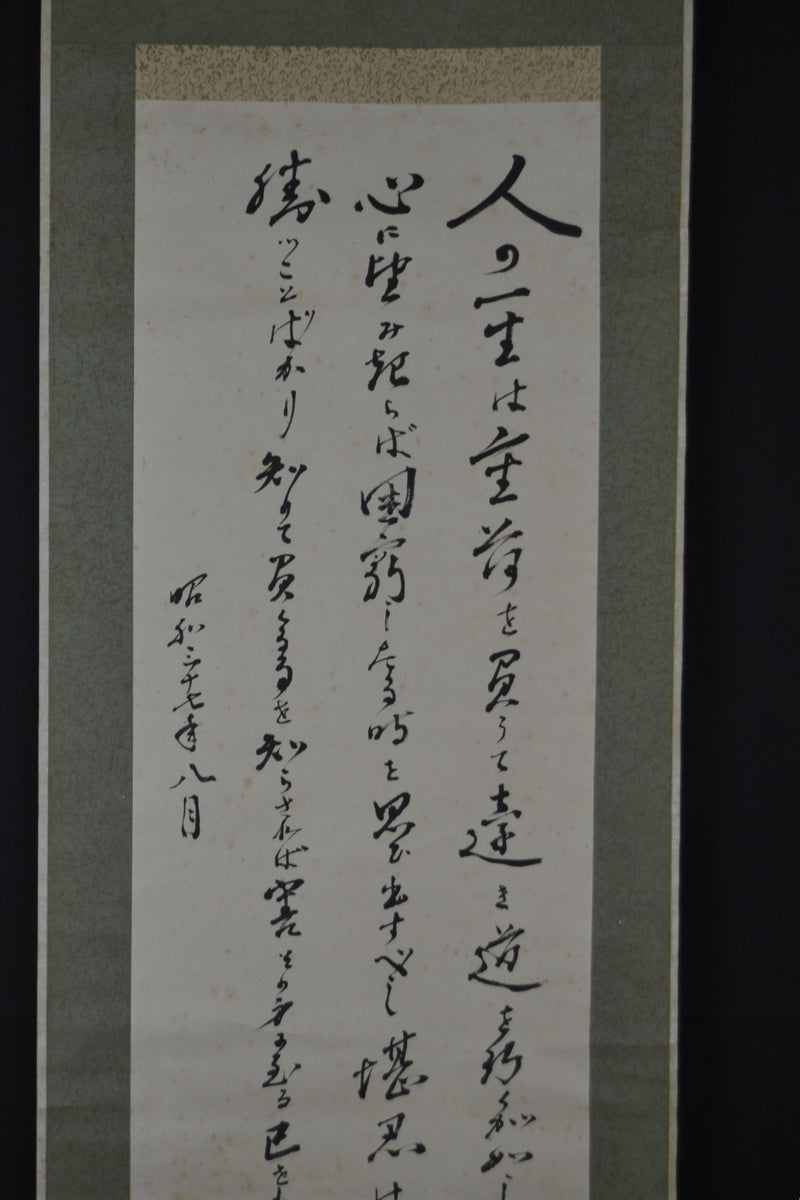 人の一生は重荷を負うて遠き道を行く如し
心に望み起らば困窮したる時を思ひ出すべし堪忍は
勝つことばかり知りて負くる事を知らざれば害その身に至る己を
昭和三十七年八月